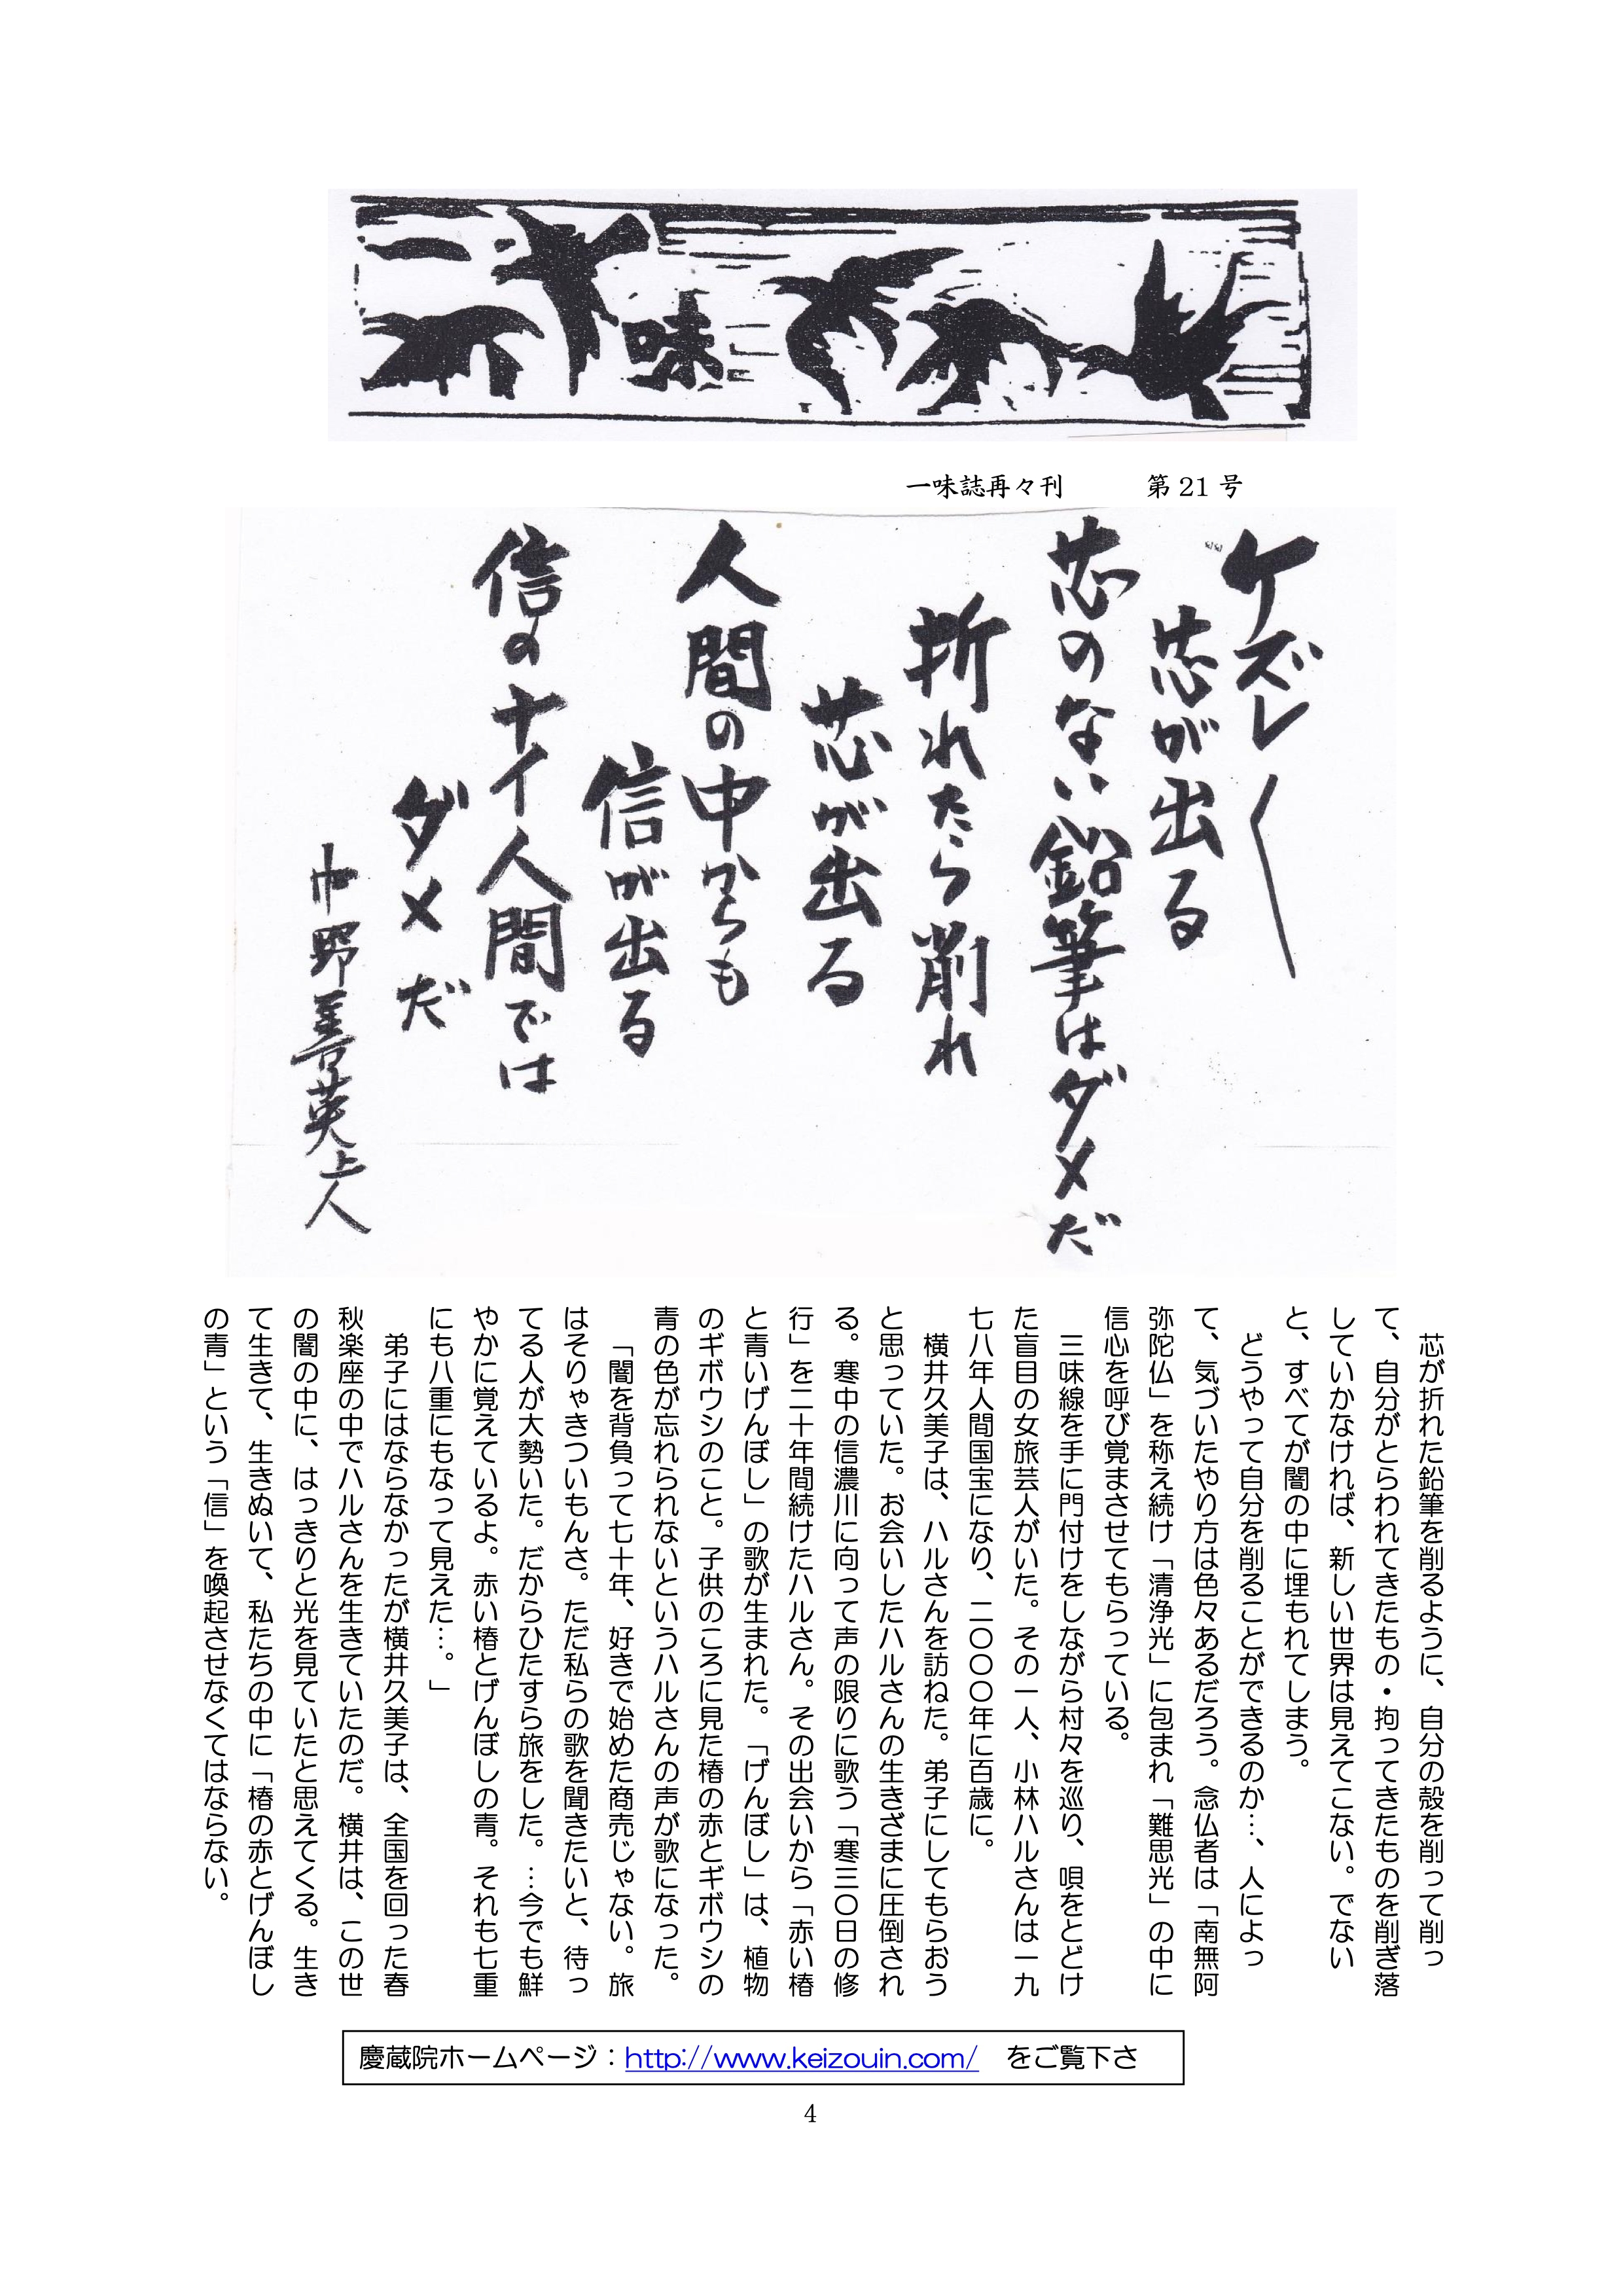 一味
一味誌再々刊　第21号
ケズレ〱
芯が出る
芯のない鉛筆はダメだ
折れたら削れ
芯が出る
人間の中からも
信が出る
信のナイ人間では
ダメだ
中野善英上人
芯が折れた鉛筆を削るように、自分の殻を削って削っ
て、自分がとらわれてきたもの・拘ってきたものを削ぎ落
していかなければ、新しい世界は見えてこない。でない
と、すべてが闇の中に埋もれてしまう。
どうやって自分を削ることができるのか…、人によっ
て、気づいたやり方は色々あるだろう。念仏者は「南無阿
弥陀仏」を称え続け「清浄光」に包まれ「難思光」の中に
信心を呼び覚まさせてもらっている。
三味線を手に門付けをしながら村々を巡り、唄をとどけ
た盲目の女旅芸人がいた。その一人、小林ハルさんは一九
七八年人間国宝になり、二〇〇〇年に百歳に。
横井久美子は、ハルさんを訪ねた。弟子にしてもらおう
と思っていた。お会いしたハルさんの生きざまに圧倒され
る。寒中の信濃川に向って声の限りに歌う「寒三〇日の修
行」を二十年間続けたハルさん。その出会いから「赤い椿
と青いげんぼし」の歌が生まれた。「げんぼし」は、植物
のギボウシのこと。子供のころに見た椿の赤とギボウシの
青の色が忘れられないというハルさんの声が歌になった。
「闇を背負って七十年、好きで始めた商売じゃない。旅
はそりゃきついもんさ。ただ私らの歌を聞きたいと、待っ
てる人が大勢いた。だからひたすら旅をした。…今でも鮮
やかに覚えているよ。赤い椿とげんぼしの青。それも七重
にも八重にもなって見えた…。」
弟子にはならなかったが横井久美子は、全国を回った春
秋楽座の中でハルさんを生きていたのだ。横井は、この世
の闇の中に、はっきりと光を見ていたと思えてくる。生き
て生きて、生きぬいて、私たちの中に「椿の赤とげんぼし
の青」という「信」を喚起させなくてはならない。
慶蔵院ホームページ：http://www.keizouin.com/　をご覧下さ
4